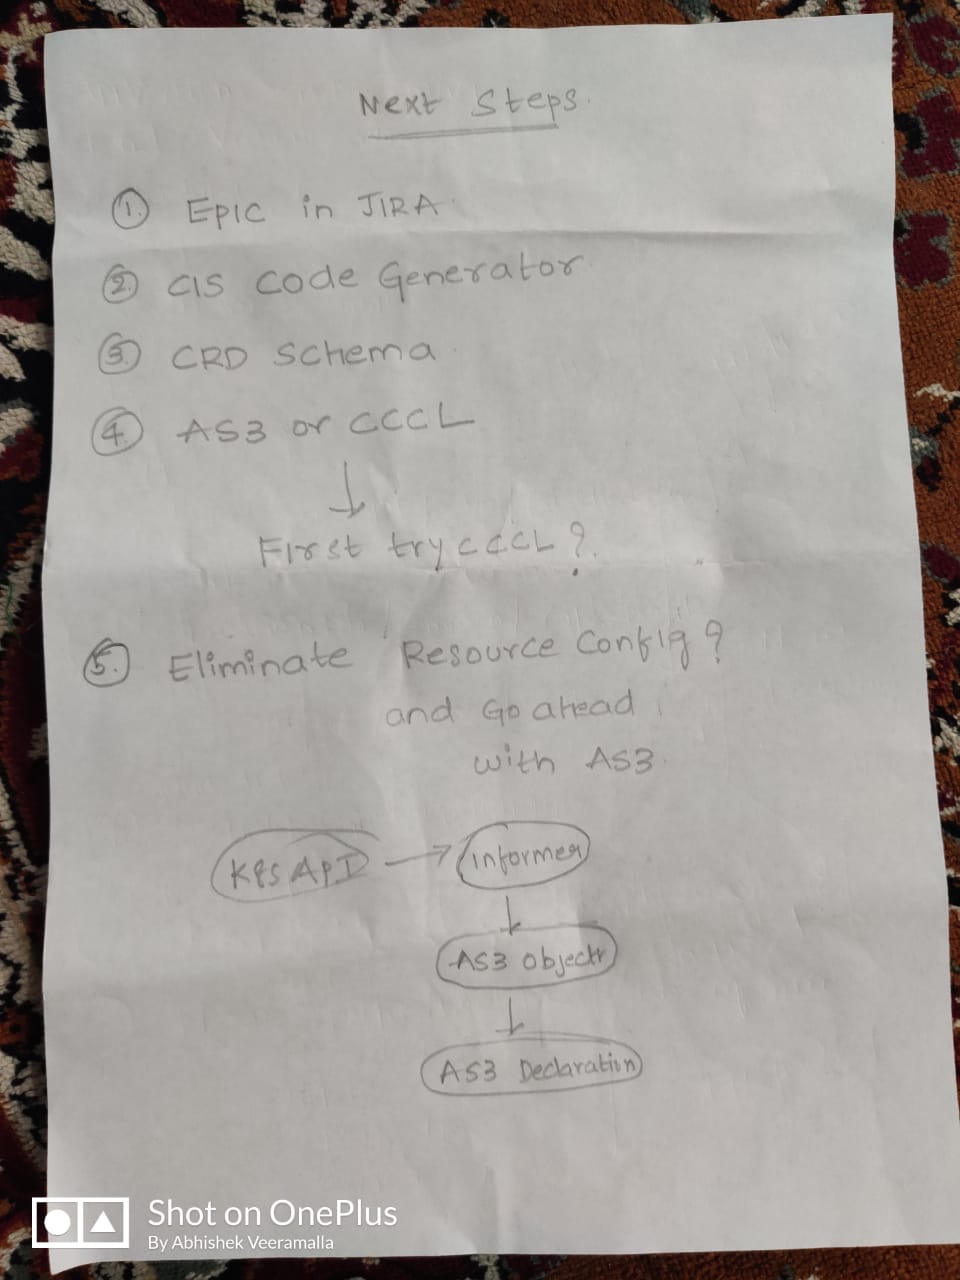 Next Steps.
1. Epic in JIRA.
2. CIS Code Generator
3. CRD Schema.
4. AS3 or CCCL
↓
First try CCCL?.
5. Eliminate Resource Config?
and Go ahead
with AS3.
K8s API → informer
↓
AS3 Objects
↓
AS3 Declaration
Shot on OnePlus
By Abhishek Veeramalla